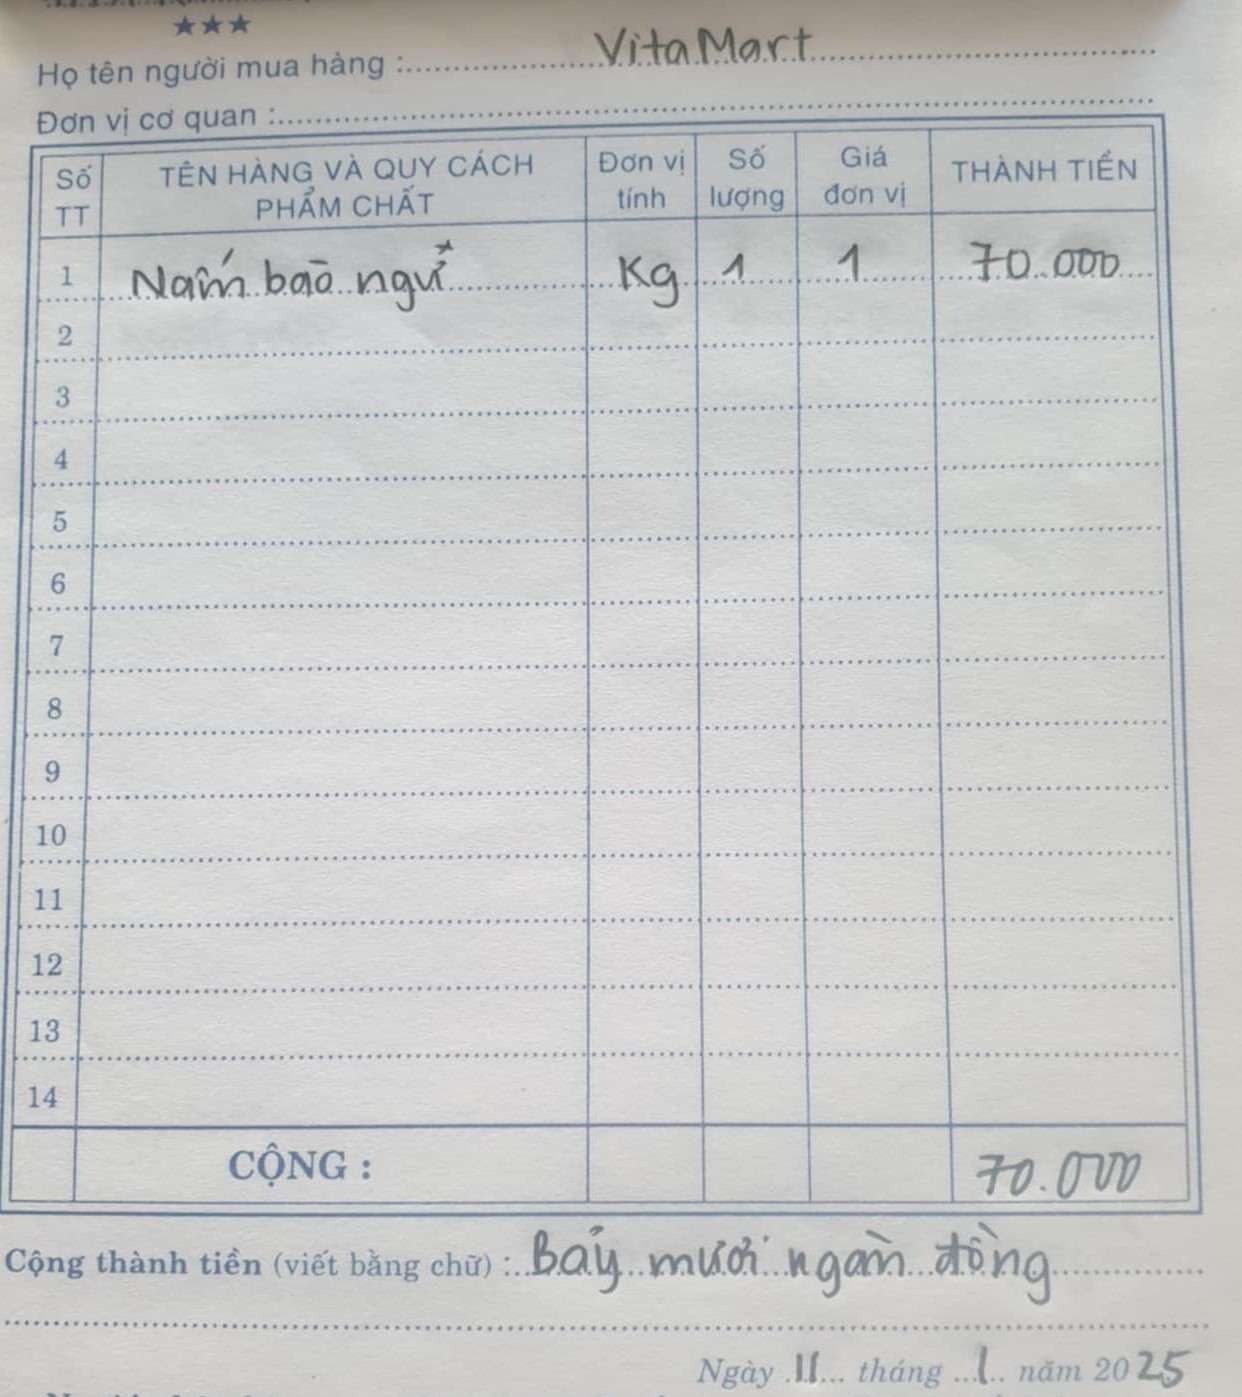 ★★★
Họ tên người mua hàng : VitaMart
Đơn vị cơ quan :
Số TT | TÊN HÀNG VÀ QUY CÁCH PHẨM CHẤT | Đơn vị tính | Số lượng | Giá đơn vị | THÀNH TIỀN
1 | Nấm bào ngư | Kg | 1 | 1 | 70.000
2
3
4
5
6
7
8
9
10
11
12
13
14
CỘNG : 70.000
Cộng thành tiền (viết bằng chữ) : Bảy mươi ngàn đồng
Ngày 11 tháng 1 năm 2025